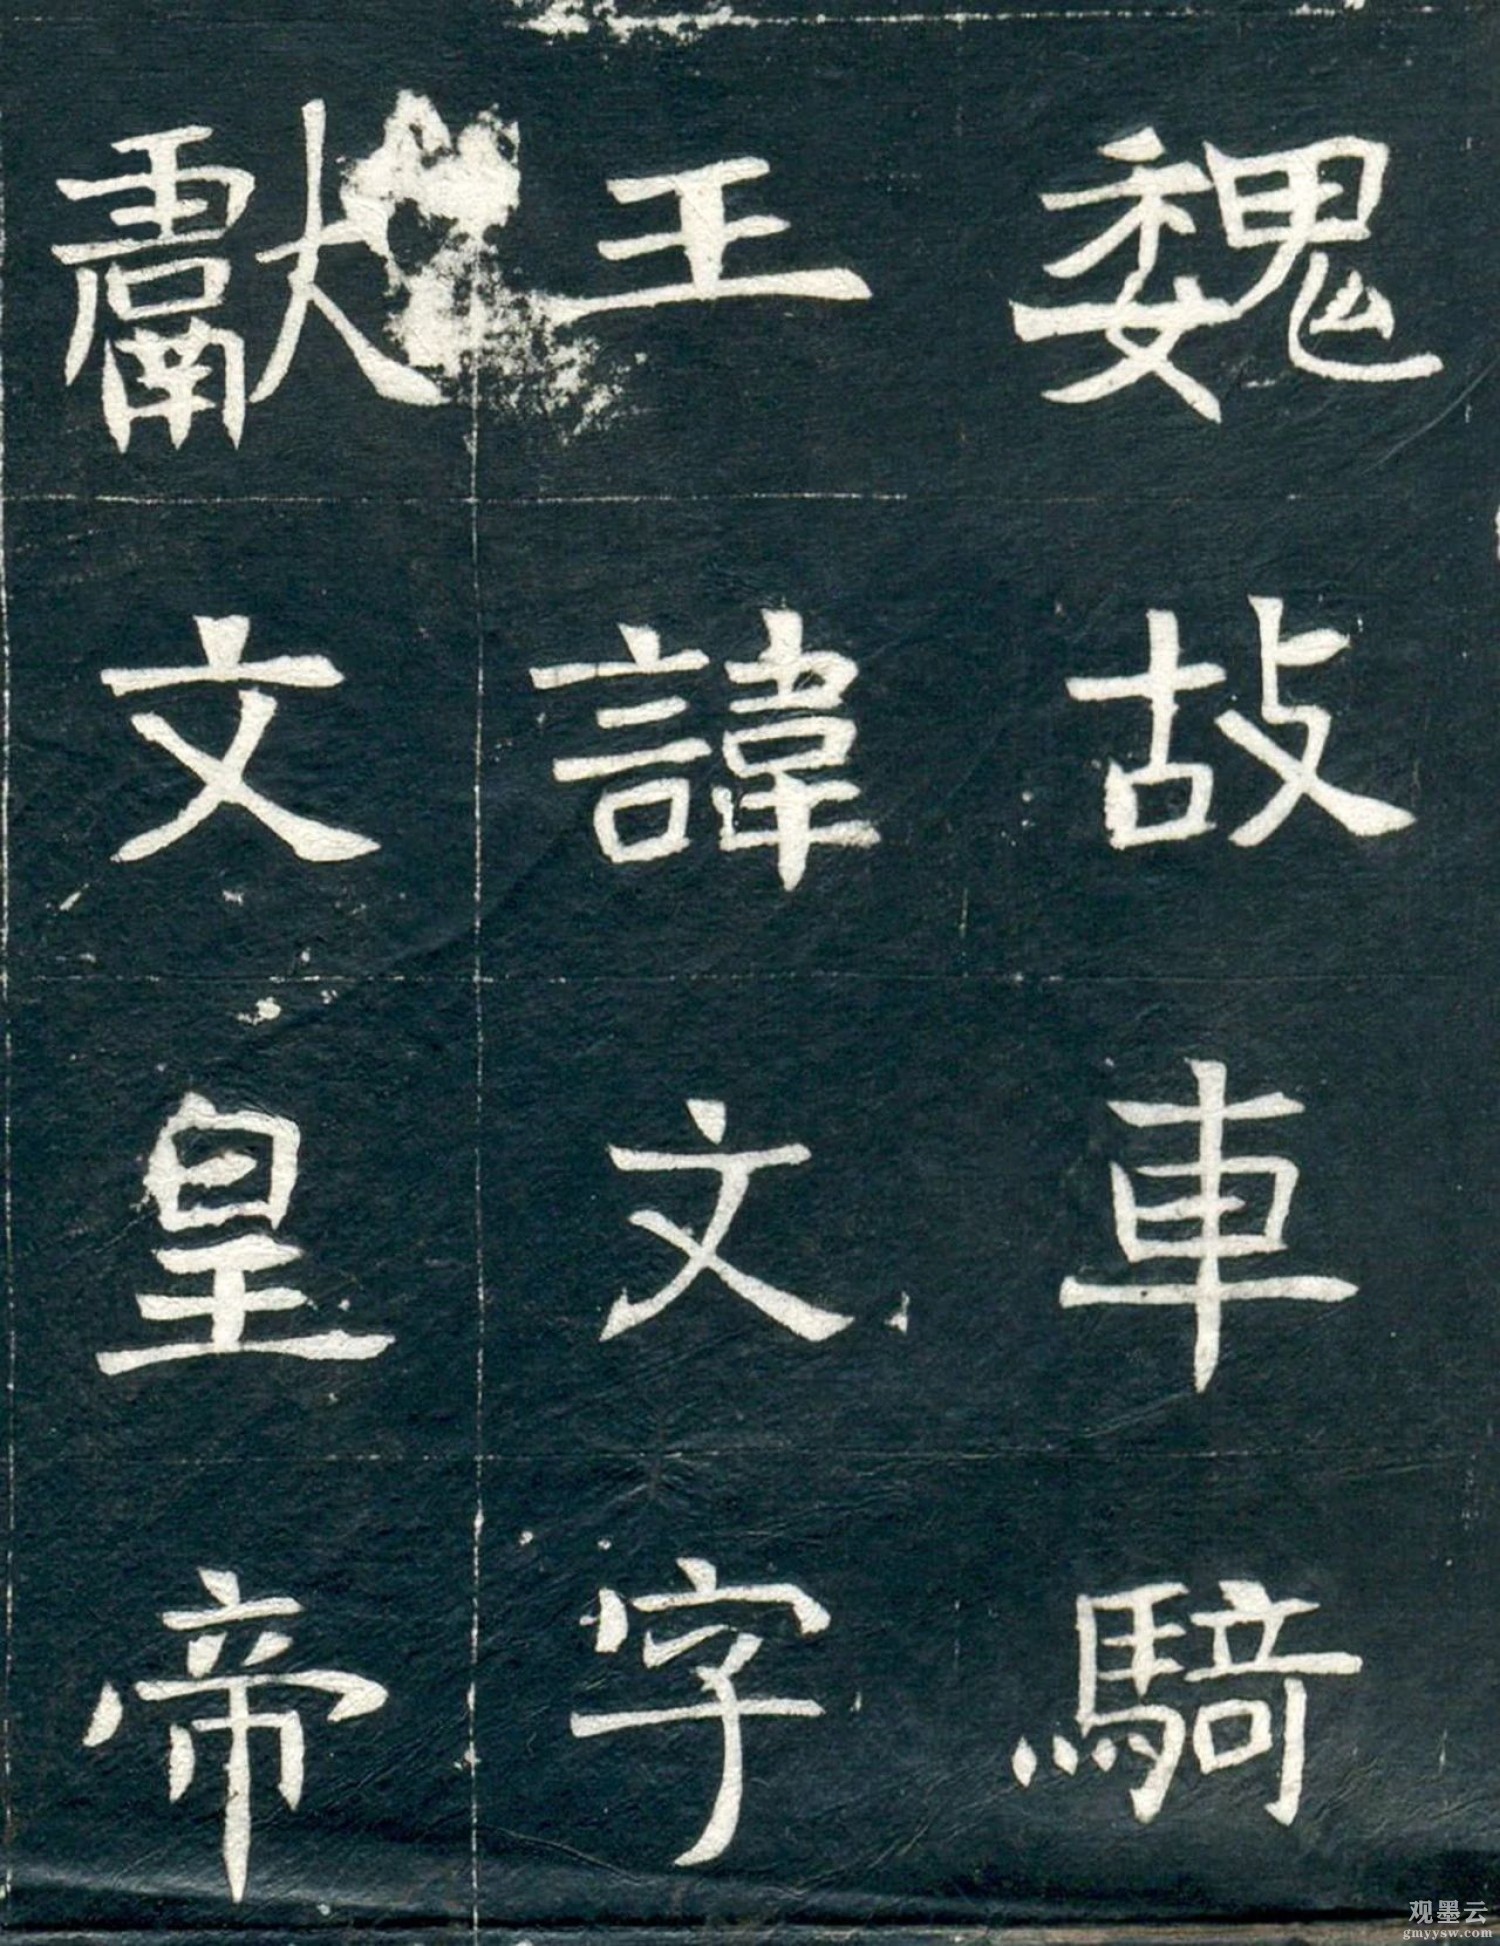 魏故車騎
王諱文字
獻文皇帝
观墨云
gmyysw.com